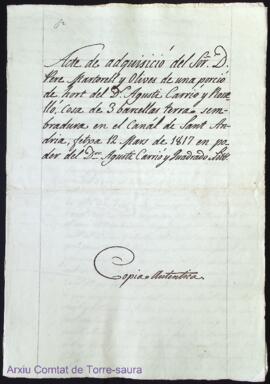 Acte de adquisició del Sor. D.
Pere Martorell y Olives de una porció
de hort del Dr. Agustí Carrió y Rose-
lló, cosa de 3 barcellas terra sem-
bradura en el Canál de Sant An-
dria, fetxa 12 Mars de 1817 en po-
der del Dr. Agustí Carrió y Quadrado Nott.
Copia Autentica
Arxiu Comtat de Torre-saura